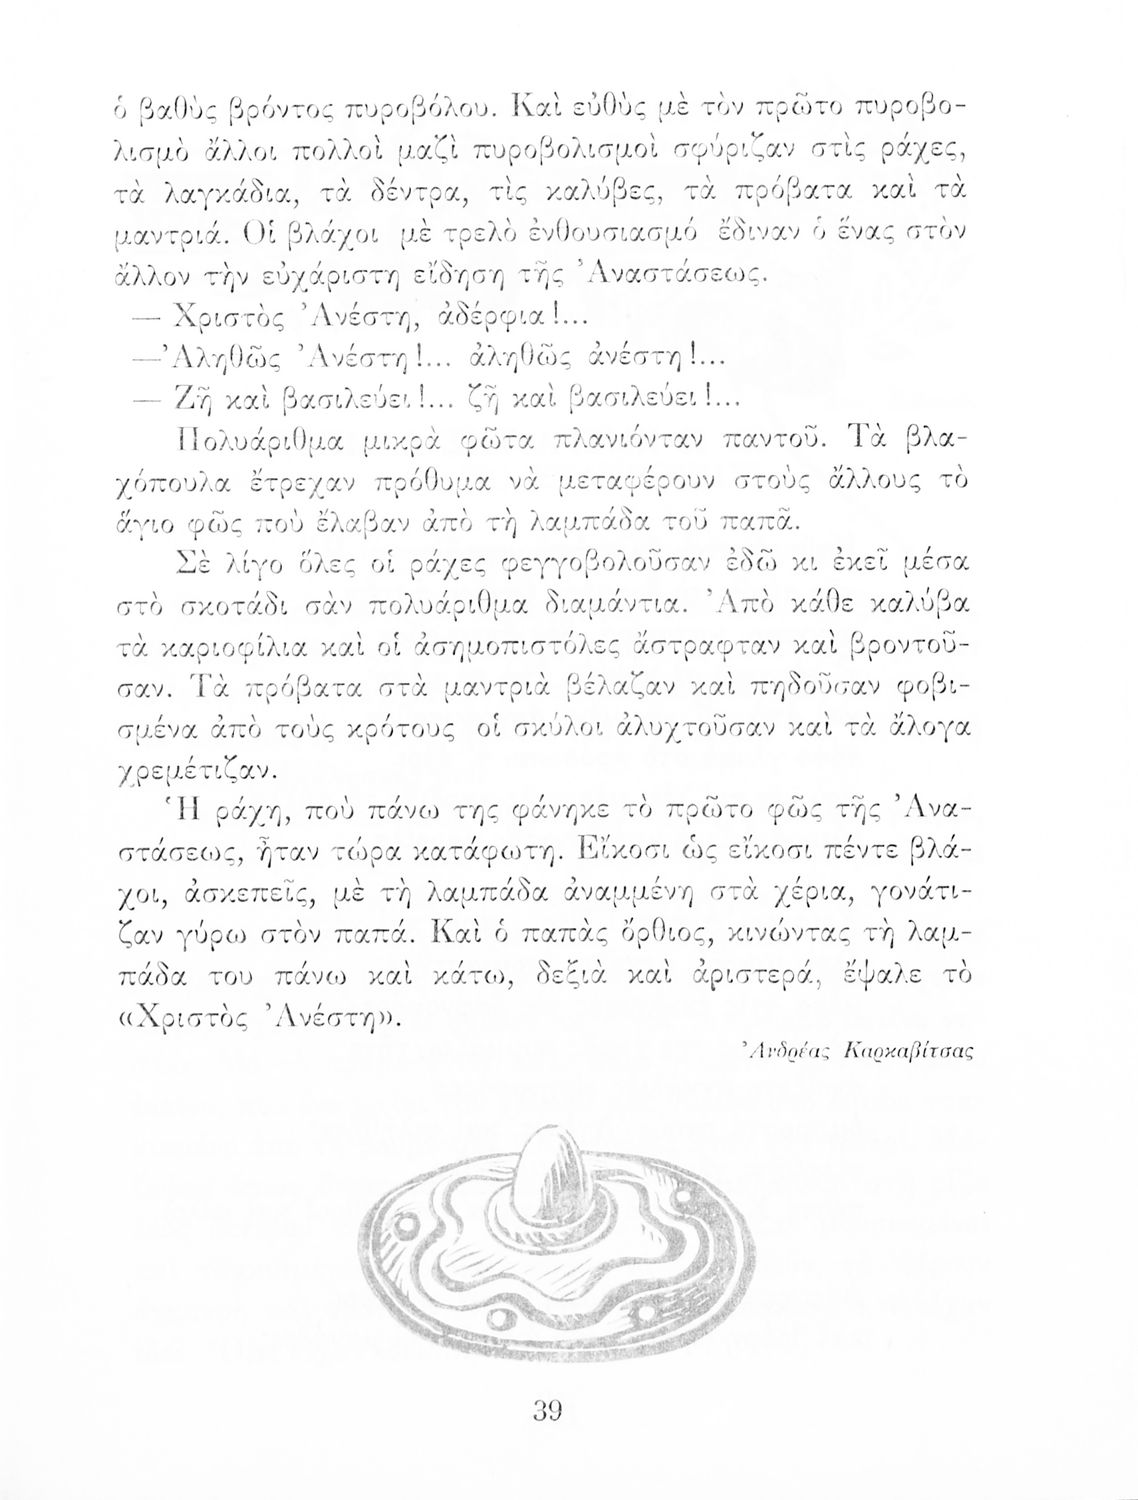 ὁ βαθὺς βρόντος πυροβόλου. Καὶ εὐθὺς μὲ τὸν πρῶτο πυροβο-
λισμὸ ἄλλοι πολλοὶ μαζὶ πυροβολισμοὶ σφύριζαν στὶς ράχες,
τὰ λαγκάδια, τὰ δέντρα, τὶς καλύβες, τὰ πρόβατα καὶ τὰ
μαντριά. Οἱ βλάχοι μὲ τρελὸ ἐνθουσιασμό ἔδιναν ὁ ἕνας στὸν
ἄλλον τὴν εὐχάριστη εἴδηση τῆς Ἀναστάσεως.
— Χριστὸς Ἀνέστη, ἀδέρφια!...
—Ἀληθῶς Ἀνέστη!... ἀληθῶς ἀνέστη!...
— Ζῆ καὶ βασιλεύει!... ζῆ καὶ βασιλεύει!...
Πολυάριθμα μικρὰ φῶτα πλανιόνταν παντοῦ. Τὰ βλα-
χόπουλα ἔτρεχαν πρόθυμα νὰ μεταφέρουν στοὺς ἄλλους τὸ
ἅγιο φῶς ποὺ ἔλαβαν ἀπὸ τὴ λαμπάδα τοῦ παπᾶ.
Σὲ λίγο ὅλες οἱ ράχες φεγγοβολοῦσαν ἐδῶ κι ἐκεῖ μέσα
στὸ σκοτάδι σὰν πολυάριθμα διαμάντια. Ἀπὸ κάθε καλύβα
τὰ καριοφίλια καὶ οἱ ἀσημοπιστόλες ἄστραφταν καὶ βροντοῦ-
σαν. Τὰ πρόβατα στὰ μαντριὰ βέλαζαν καὶ πηδοῦσαν φοβι-
σμένα ἀπὸ τοὺς κρότους οἱ σκύλοι ἀλυχτοῦσαν καὶ τὰ ἄλογα
χρεμέτιζαν.
Ἡ ράχη, ποὺ πάνω της φάνηκε τὸ πρῶτο φῶς τῆς Ἀνα-
στάσεως, ἦταν τώρα κατάφωτη. Εἴκοσι ὡς εἴκοσι πέντε βλά-
χοι, ἀσκεπεῖς, μὲ τὴ λαμπάδα ἀναμμένη στὰ χέρια, γονάτι-
ζαν γύρω στὸν παπά. Καὶ ὁ παπὰς ὄρθιος, κινώντας τὴ λαμ-
πάδα του πάνω καὶ κάτω, δεξιὰ καὶ ἀριστερά, ἔψαλε τὸ
«Χριστὸς Ἀνέστη».
Ἀνδρέας Καρκαβίτσας
39